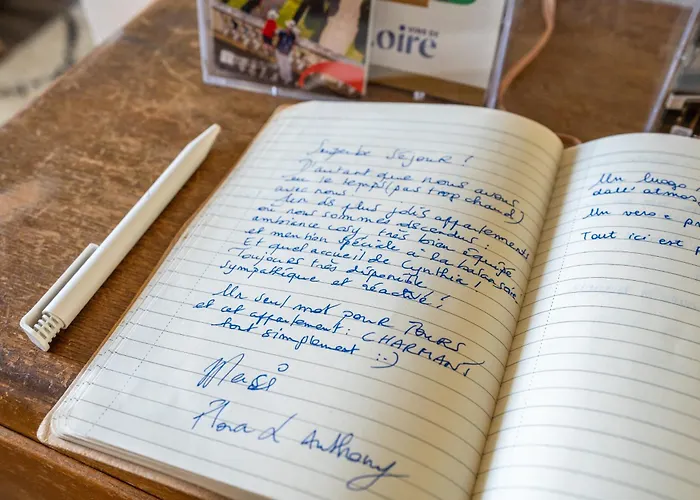 VINS DE
Loire
Superbe séjour !
D'autant que nous avons
eu le temps (pas trop chaud)
avec nous !
Un des plus jolis appartements
où nous sommes descendus :
ambiance cosy, très bien équipé
et mention spéciale à la baignoire
Et quel accueil de Cynthia !
Toujours très disponible !
sympathique et réactive !
Un seul mot pour TOURS
et cet appartement : CHARMANT
tout simplement :-)
Merci
Flora & Anthony
Un luogo
dall'atmos
Un vero e pr
Tout ici est p